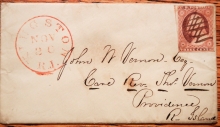 NOV
20
R.I.
John W. Vernon Esq.
Care Thos. Vernon
Providence
R. Island